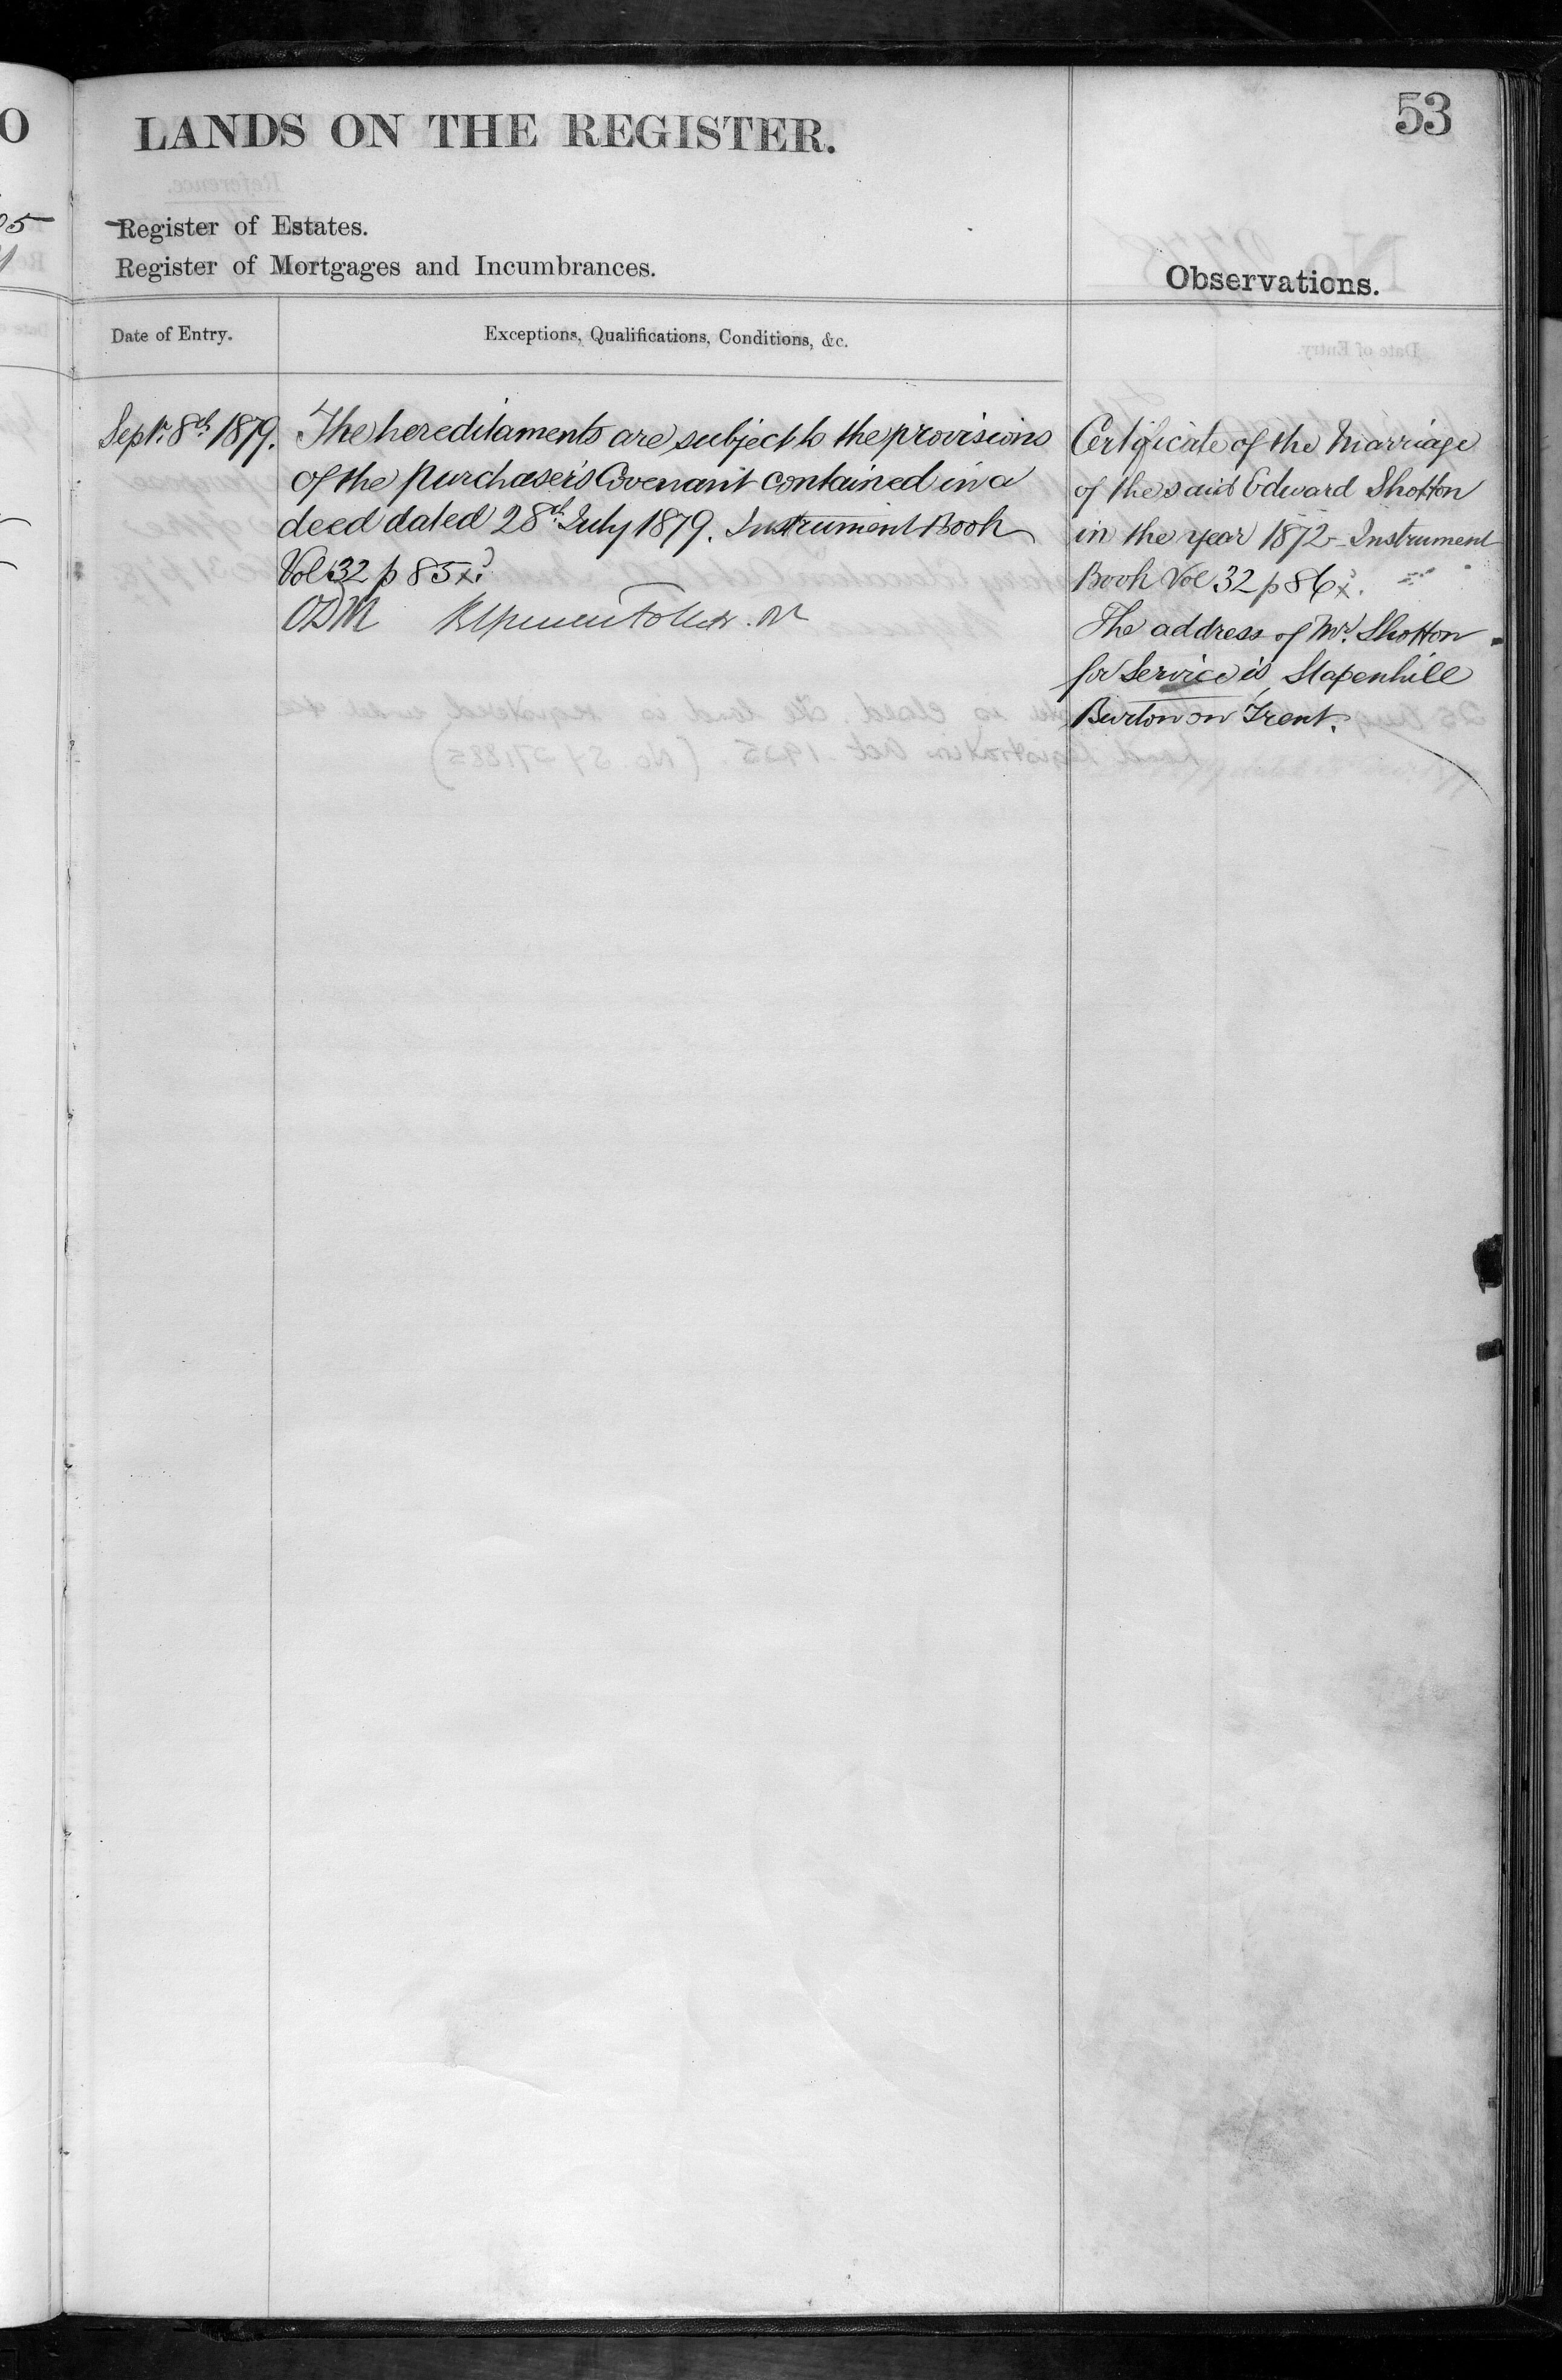 53
LANDS ON THE REGISTER.
Register of Estates.
Register of Mortgages and Incumbrances.
Observations.
Date of Entry.
Exceptions, Qualifications, Conditions, &c.
Septr. 8th 1879.
The hereditaments are subject to the provisions
of the purchaser's Covenant contained in a
deed dated 28th July 1879. Instrument Book
Vol 32 p 85
Certificate of the Marriage
of the said Edward Shotton
in the year 1872 - Instrument
Book Vol 32 p 86
The address of Mr. Shotton
for Service is, Stapenhill
Burton on Trent.